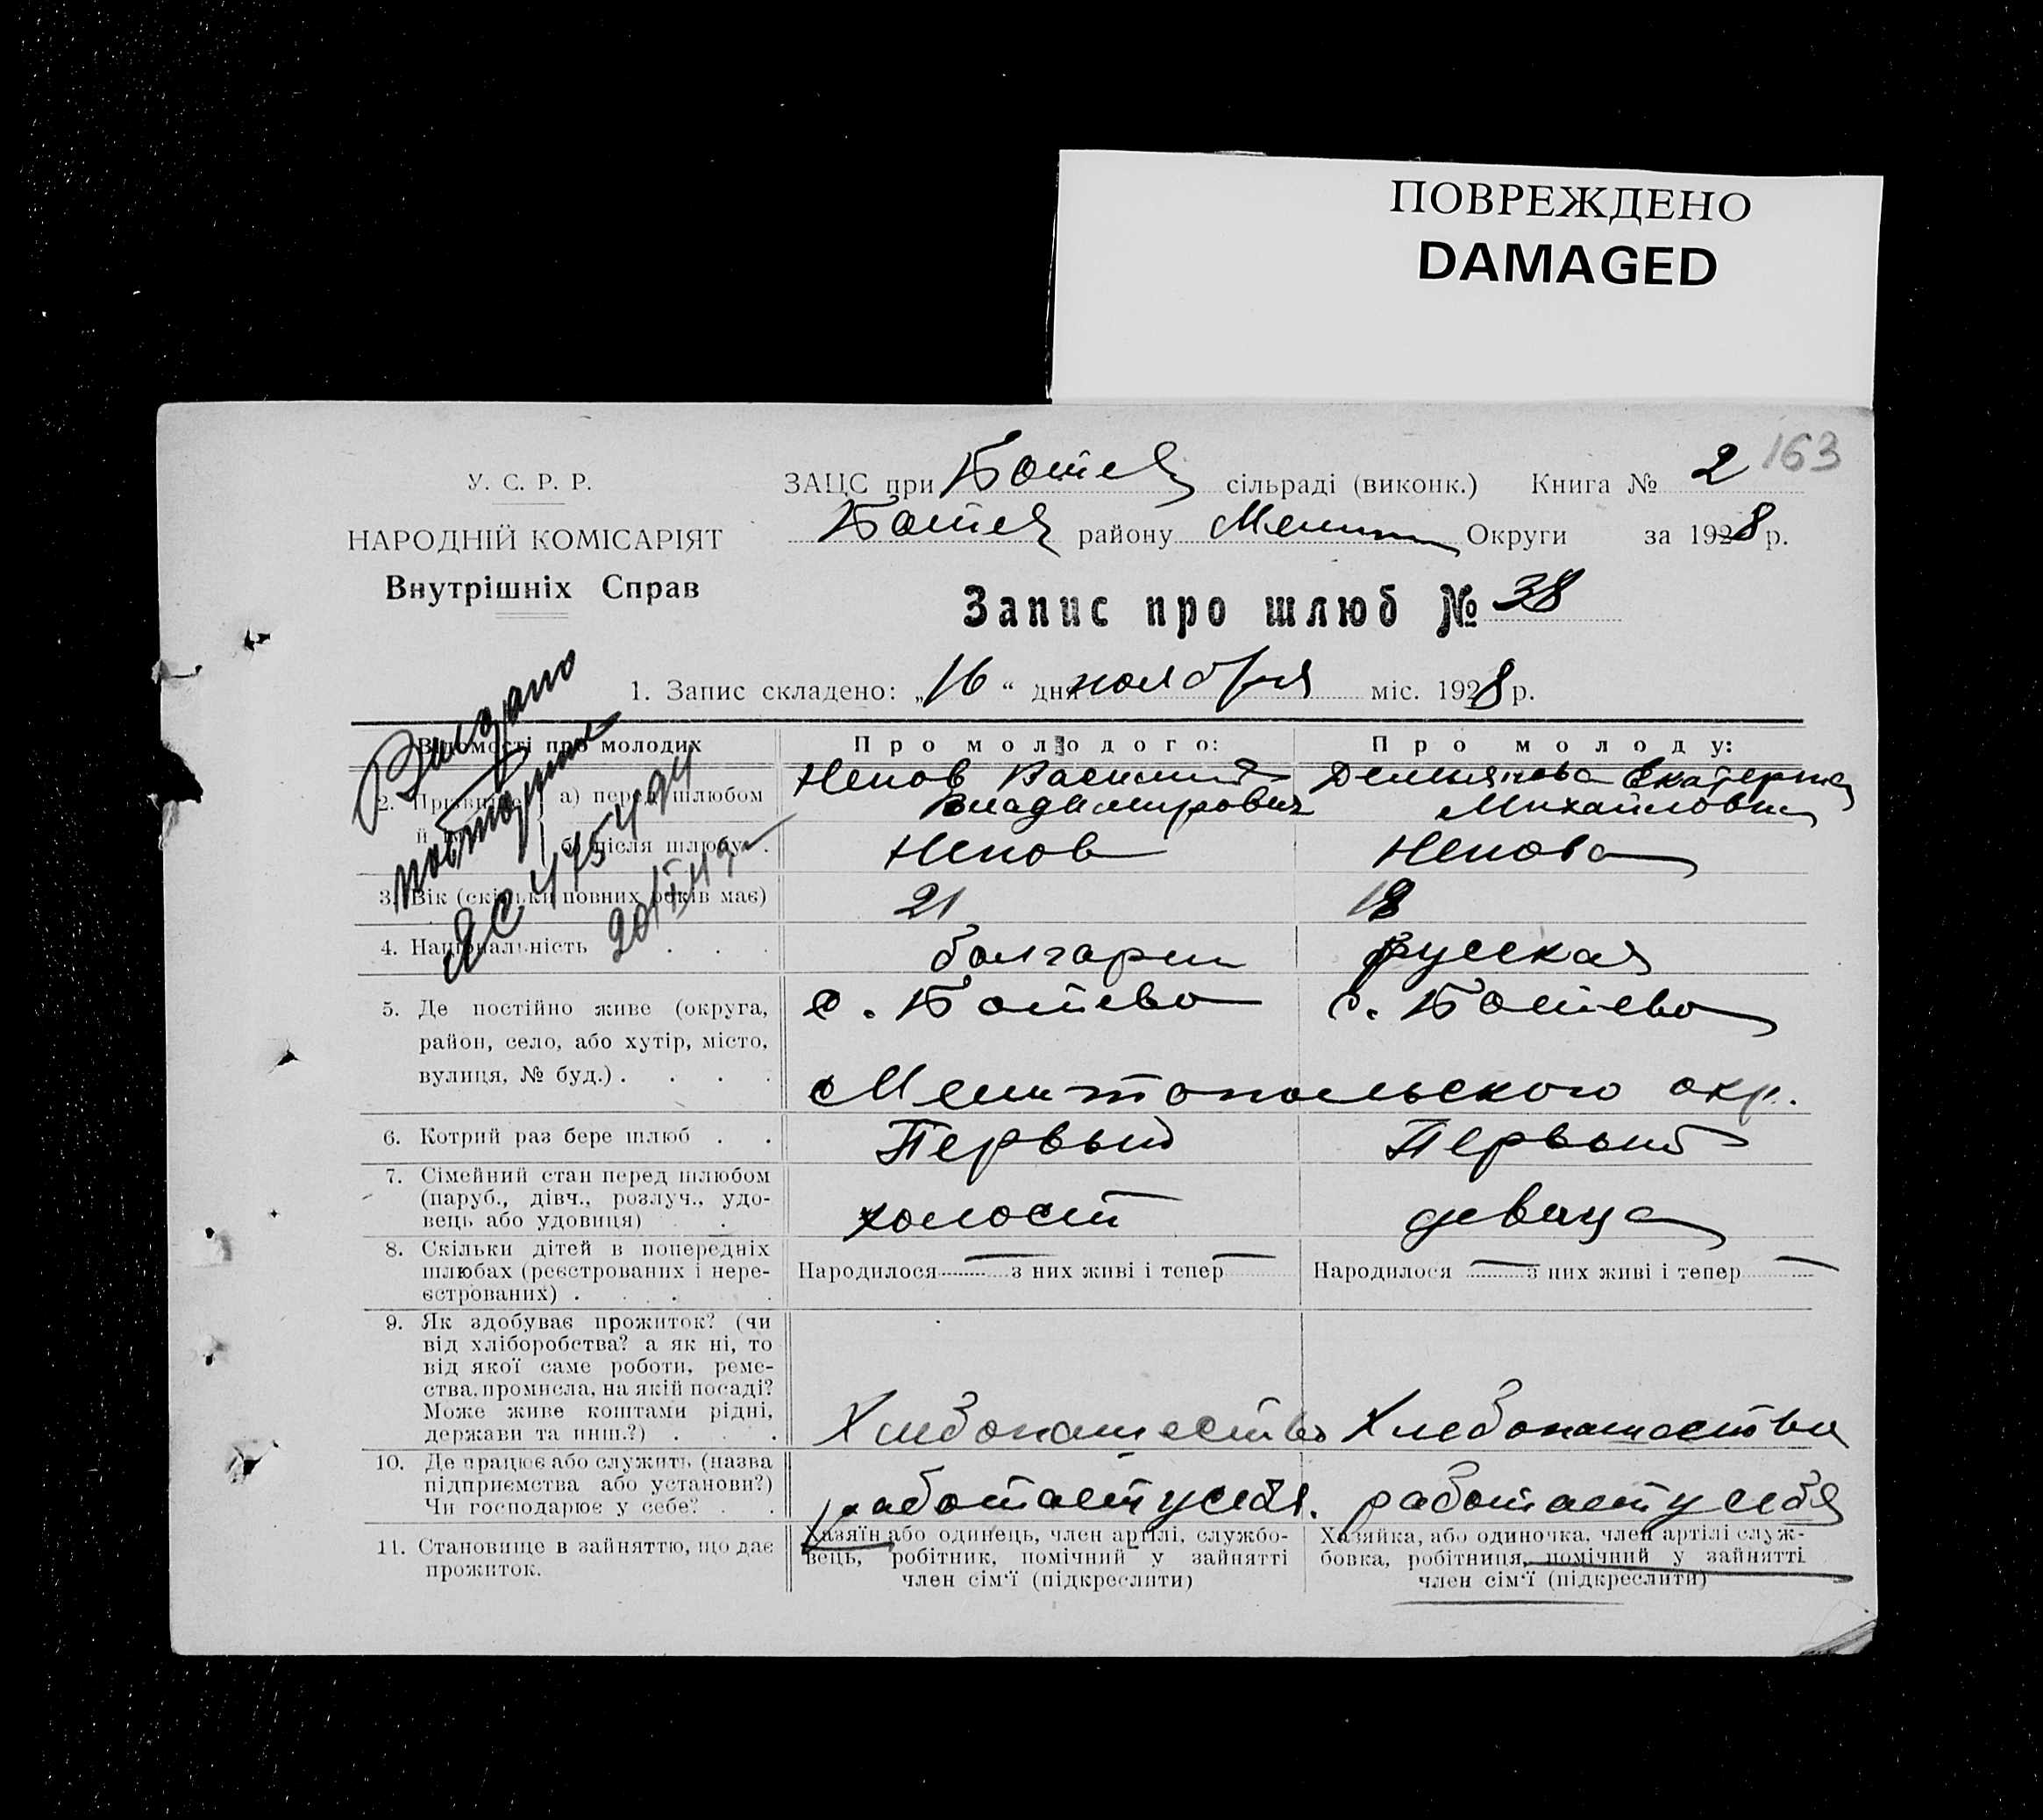 ПОВРЕЖДЕНО
DAMAGED
163
У. С. Р. Р.
НАРОДНІЙ КОМІСАРІЯТ
Внутрішніх Справ
ЗАЦС при Ботев сільраді (виконк.) Книга № 2
Ботев району Мелит Округи за 1928 р.
Запис про шлюб № 38
1. Запис складено: „16“ дня ноября міс. 1928 р.
Видано
повторное
ЯС 475494
Відомості про молодих
Про молодого:
Про молоду:
2. Призвище й
а) перед шлюбом
Ненов Василий Владимирович
Екатерина Михайловна
б) після шлюбу
Ненов
Ненова
3. Вік (скільки повних років має)
21
18
4. Національність
болгарин
русская
5. Де постійно живе (округа,
район, село, або хутір, місто,
вулиця, № буд.)
с. Ботево
с. Ботево
Мелитопольского окр.
6. Котрий раз бере шлюб
Первый
Первый
7. Сімейний стан перед шлюбом
(паруб., дівч., розлуч., удо-
вець або удовиця)
холост
девица
8. Скільки дітей в попередніх
шлюбах (реєстрованих і нере-
єстрованих)
Народилося — з них живі і тепер —
Народилося — з них живі і тепер —
9. Як здобуває прожиток? (чи
від хліборобства? а як ні, то
від якої саме роботи, реме-
ства, промисла, на якій посаді?
Може живе коштами рідні,
держави та инш.?)
Хлебопашество
Хлебопашество
10. Де працює або служить (назва
підприємства або установи?)
Чи господарює у себе?
работает у себя.
работает у себя
11. Становище в зайняттю, що дає
прожиток.
Хазяїн або одинець, член артілі, службо-
вець, робітник, помічний у зайнятті
член сім'ї (підкреслити)
Хазяйка, або одиночка, член артілі служ-
бовка, робітниця, помічний у зайнятті
член сім'ї (підкреслити)